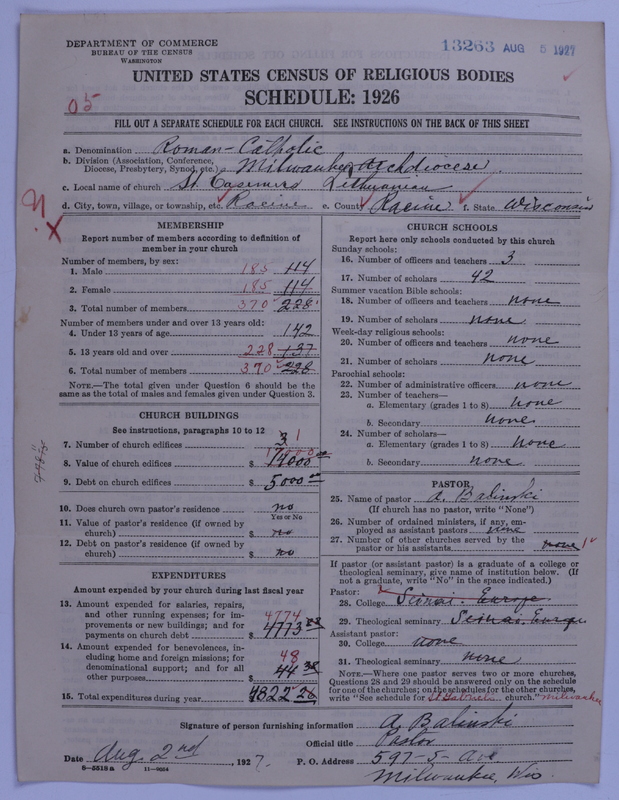 DEPARTMENT OF COMMERCE
BUREAU OF THE CENSUS
WASHINGTON
13263 AUG 5 1927
UNITED STATES CENSUS OF RELIGIOUS BODIES
SCHEDULE: 1926
05
FILL OUT A SEPARATE SCHEDULE FOR EACH CHURCH. SEE INSTRUCTIONS ON THE BACK OF THIS SHEET
a. Denomination Roman-Catholic
b. Division (Association, Conference,
Diocese, Presbytery, Synod, etc.) Milwaukee Archdiocese
c. Local name of church St. Casemers Lethuanean
d. City, town, village, or township, etc. Racine e. County Racine f. State Wisconsin
MEMBERSHIP
Report number of members according to definition of
member in your church
Number of members, by sex:
1. Male 185 114
2. Female 185 114
3. Total number of members 370 228
Number of members under and over 13 years old:
4. Under 13 years of age 142
5. 13 years old and over 228 137
6. Total number of members 370 228
NOTE.—The total given under Question 6 should be the
same as the total of males and females given under Question 3.
CHURCH BUILDINGS
See instructions, paragraphs 10 to 12
7. Number of church edifices 3 1
8. Value of church edifices $ 17000
9. Debt on church edifices $ 5000
10. Does church own pastor's residence? no
Yes or No
11. Value of pastor's residence (if owned by
church) $ no
12. Debt on pastor's residence (if owned by
church) $ no
EXPENDITURES
Amount expended by your church during last fiscal year
13. Amount expended for salaries, repairs,
and other running expenses; for im-
provements or new buildings; and for
payments on church debt $ 4774 4773 88
14. Amount expended for benevolences, in-
cluding home and foreign missions; for
denominational support; and for all
other purposes $ 48 44 38
15. Total expenditures during year $ 4822 26
CHURCH SCHOOLS
Report here only schools conducted by this church
Sunday schools:
16. Number of officers and teachers 3
17. Number of scholars 42
Summer vacation Bible schools:
18. Number of officers and teachers none
19. Number of scholars none
Week-day religious schools:
20. Number of officers and teachers none
21. Number of scholars none
Parochial schools:
22. Number of administrative officers none
23. Number of teachers—
a. Elementary (grades 1 to 8) none
b. Secondary none
24. Number of scholars—
a. Elementary (grades 1 to 8) none
b. Secondary none
PASTOR
25. Name of pastor A. Balinski
(If church has no pastor, write "None")
26. Number of ordained ministers, if any, em-
ployed as assistant pastors none
27. Number of other churches served by the
pastor or his assistants none 1
If pastor (or assistant pastor) is a graduate of a college or
theological seminary, give name of institution below. (If
not a graduate, write "No" in the space indicated.)
Pastor:
28. College Seinai. Europe
29. Theological seminary Seinai. Europe
Assistant pastor:
30. College none
31. Theological seminary none
NOTE.—Where one pastor serves two or more churches,
Questions 28 and 29 should be answered only on the schedule
for one of the churches; on the schedules for the other churches,
write "See schedule for St Gabriels church." Milwaukee
Signature of person furnishing information A. Balinski
Official title Pastor
Date Aug. 2nd, 1927. P. O. Address 597-5-Ave
6—5518 a 11—9054
Milwaukee, Wis.